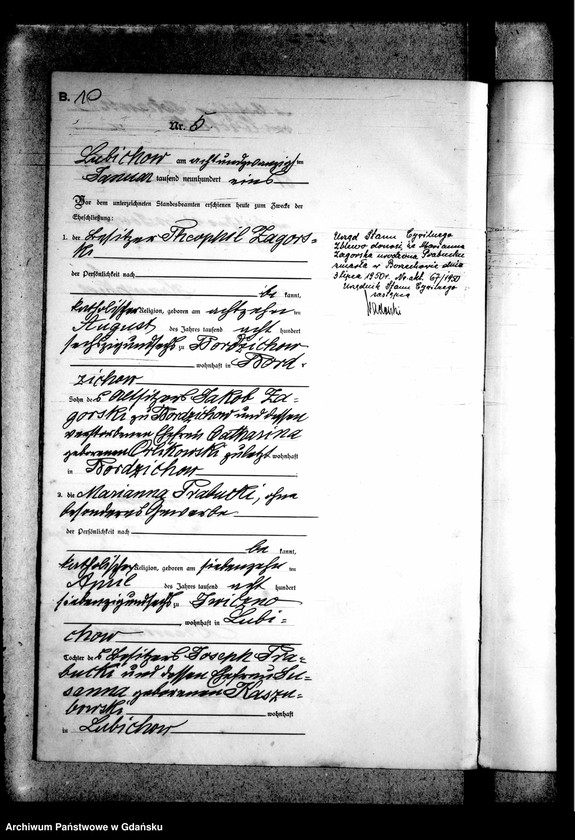 B. 10
Nr. 5
Lubichow am achtundzwanzigsten
Januar tausend neunhundert eins
Vor dem unterzeichneten Standesbeamten erschienen heute zum Zwecke der
Eheschließung:
1. der Besitzer Theophil Zagors-
ki
der Persönlichkeit nach
be kannt,
katholischer Religion, geboren am achtzehnten
August des Jahres tausend acht hundert
sechzigundsechs zu Bordzichow
wohnhaft in Bord-
zichow
Sohn des Altsitzers Jakob Za-
gorski zu Bordzichow und dessen
verstorbenen Ehefrau Catharina
geborenen Orlikowski zuletzt wohnhaft
in Bordzichow
2. die Marianna Prabucki, ohne
besonderes Gewerbe
der Persönlichkeit nach
be kannt,
katholischer Religion, geboren am siebenzehnten
April des Jahres tausend acht hundert
siebenzigundsechs zu Zwiczno
wohnhaft in Lubi-
chow
Tochter des Besitzers Joseph Pra-
bucki und dessen Ehefrau Su-
sanna geborenen Kaszu-
bowski wohnhaft
in Lubichow
Urząd Stanu Cywilnego
Zblewo donosi, że Marianna
Zagorska urodzona Prabucka
zmarła w Borzechowie dnia
3 lipca 1950r. Nr. akt. 67/1950
Urzędnik Stanu Cywilnego
zastępca
Archiwum Państwowe w Gdańsku